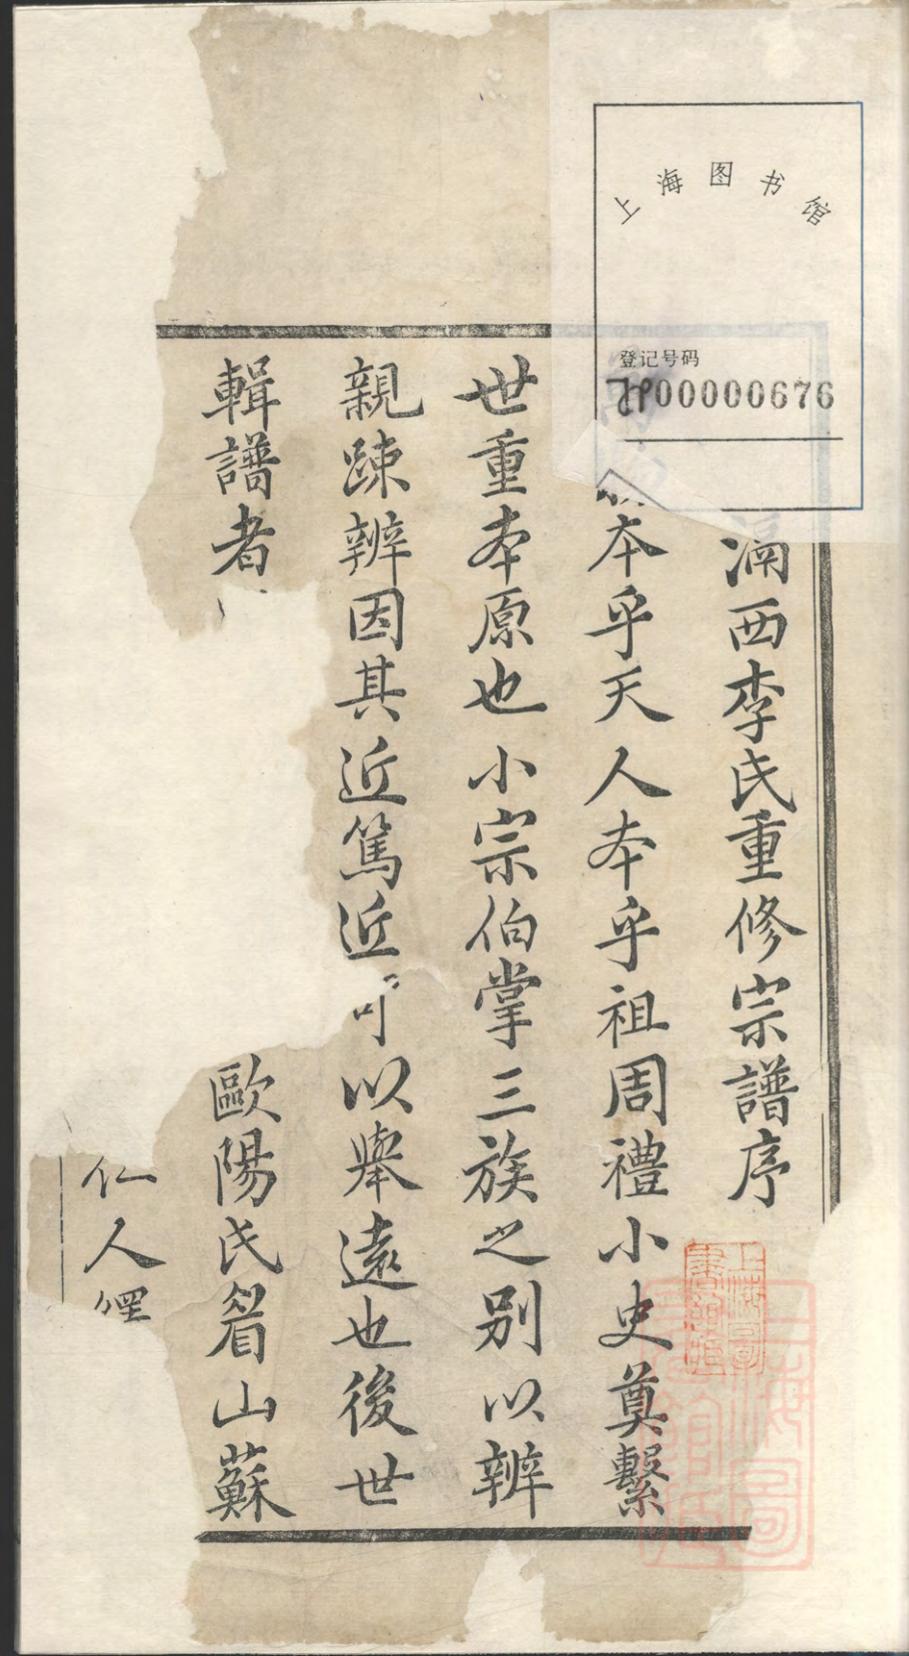 上海图书馆
登记号码
00000676
漏西李氏重修宗譜序
本乎天人本乎祖周禮小史奠繫
世重本原也小宗伯掌三族之别以辨
親踈辨因其近篤近可以舉遠也後世
輯譜者歐陽氏眉山蘇
人
上海圖書館
上海圖書館藏